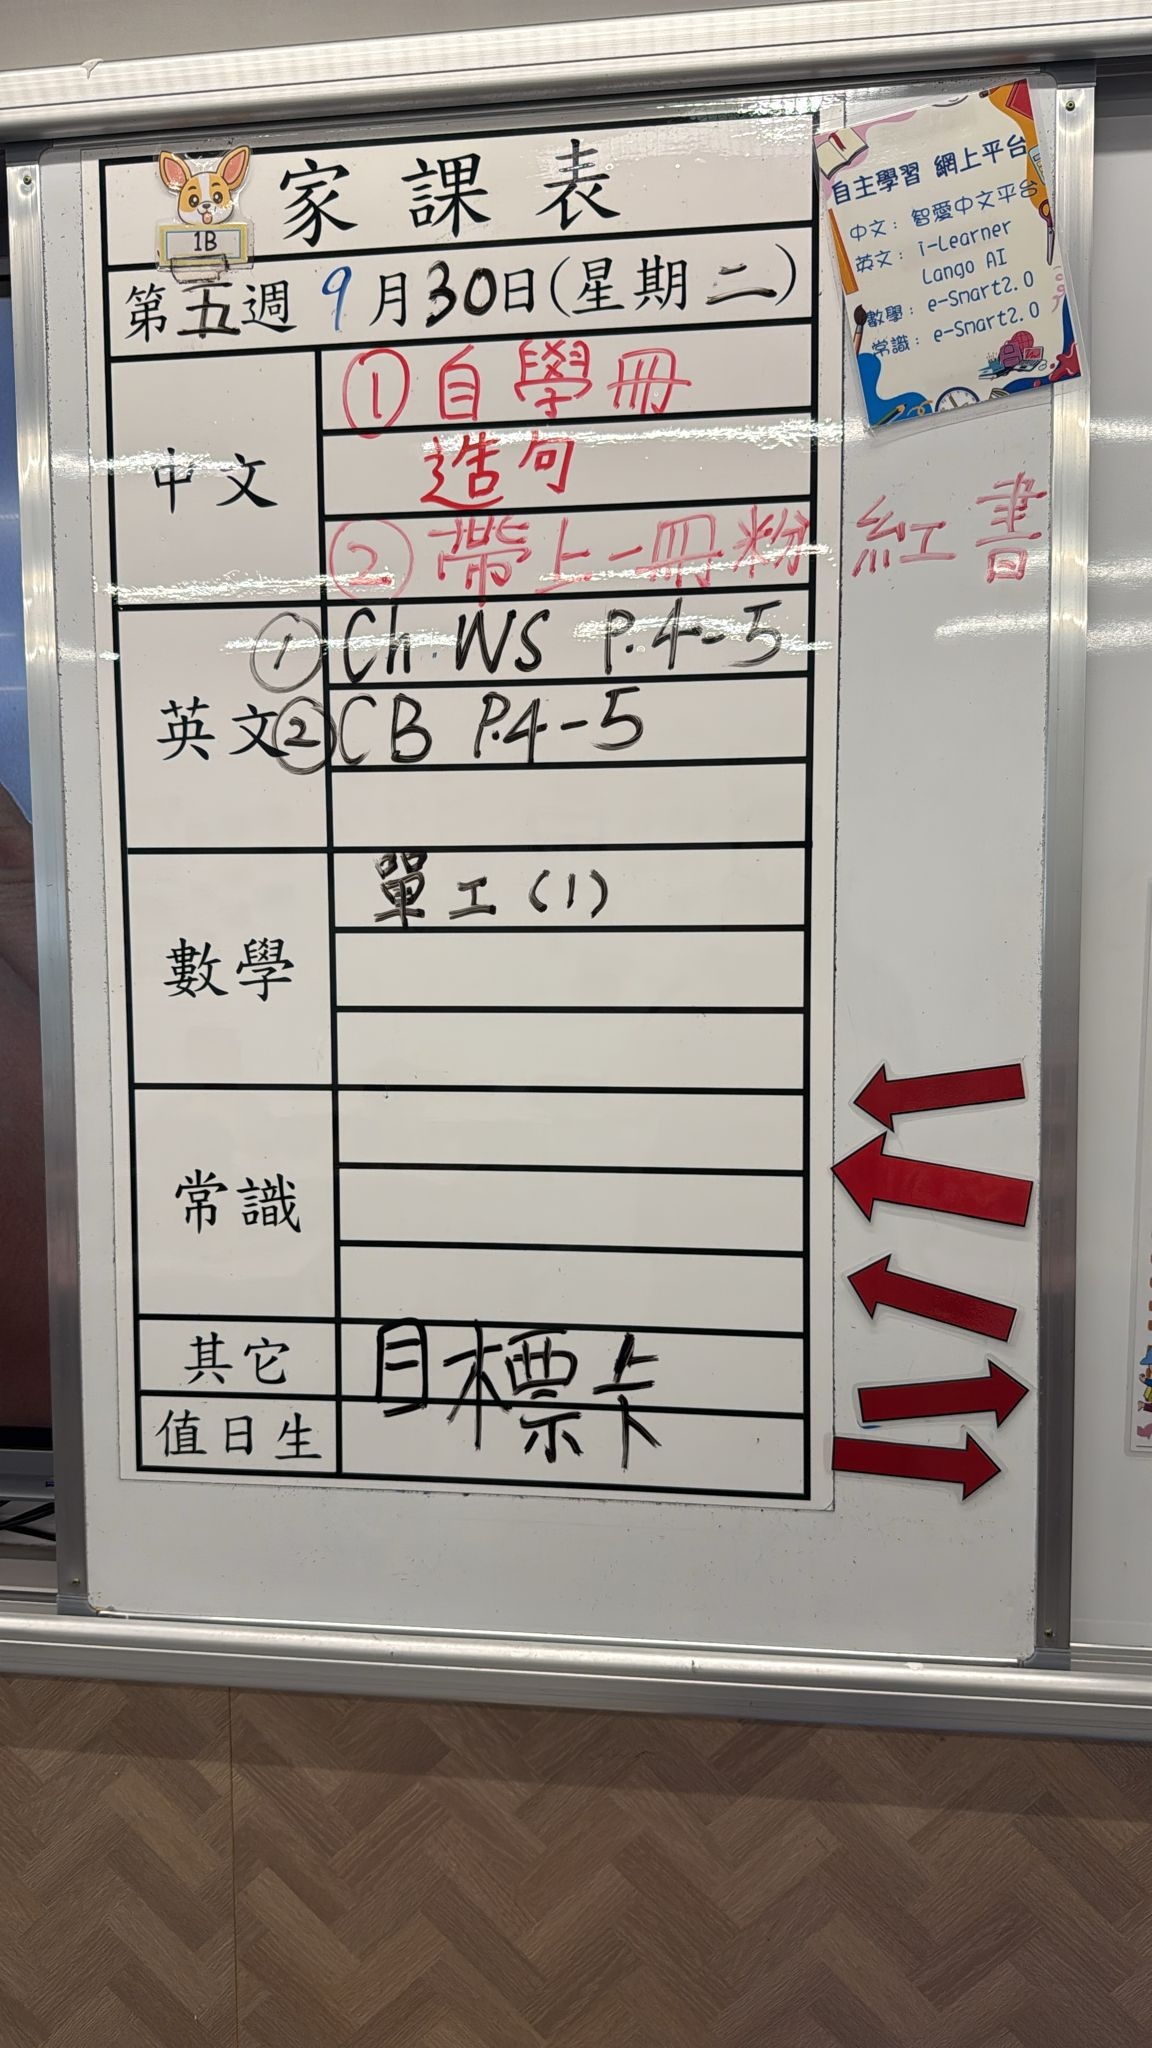 家課表
1B
第五週 9月30日(星期二)
中文
① 自學冊
造句
② 帶上一冊粉紅書
英文
① Ch. WS P.4-5
② CB P.4-5
數學
單工(1)
常識
其它
目標卡
值日生
自主學習 網上平台
中文: 智愛中文平台
英文: i-Learner
Lango AI
數學: e-Smart2.0
常識: e-Smart2.0